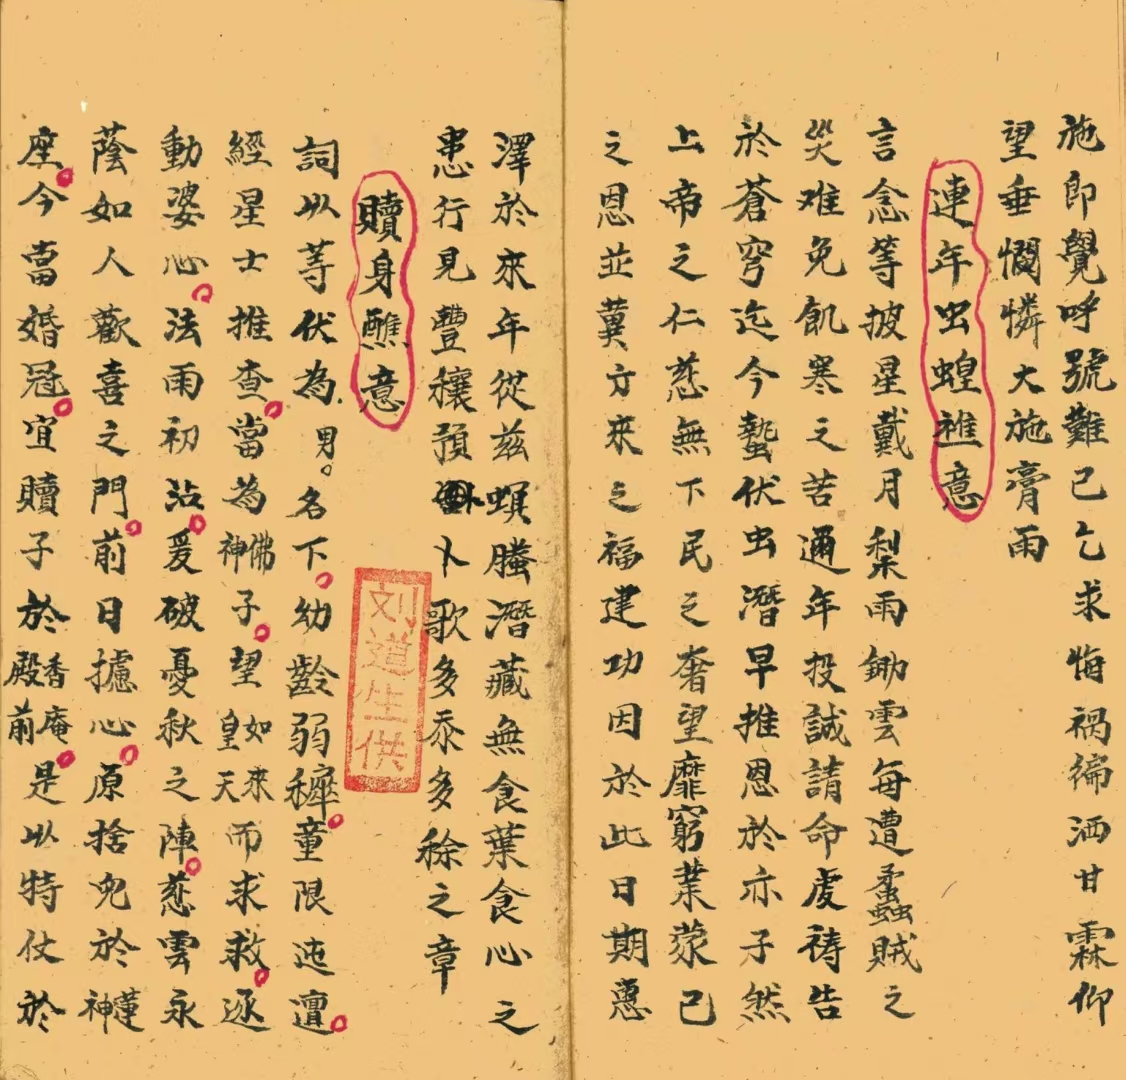 施即覺呼號難已乞求悔祸徧洒甘霖仰
望垂憫憐大施膏雨
連年虫蝗醮意
言念等披星戴月梨雨鋤雲每遭蟊賊之
災难免飢寒之苦通年投誠請命虔祷告
於蒼穹迄今蟄伏虫潛早推恩於亦子然
上帝之仁慈無下民之奢望靡窮業荥已
之恩並冀方來之福建功因於此日期惠
澤於來年從茲螟螣潛藏無食葉食心之
患行見豐穰預卜歌多黍多稌之章
贖身醮意
詞以等伏為男名下幼齡弱穉童限迍邅
經星士推查當為神佛子望皇天如來而求救逐
動婆心法雨初沾爰破憂秋之陣慈雲永
蔭如人歡喜之門前日攄心原捨兒於神蓮
座今當婚冠宜贖子於殿前香庵是以特仗於
刘道生供